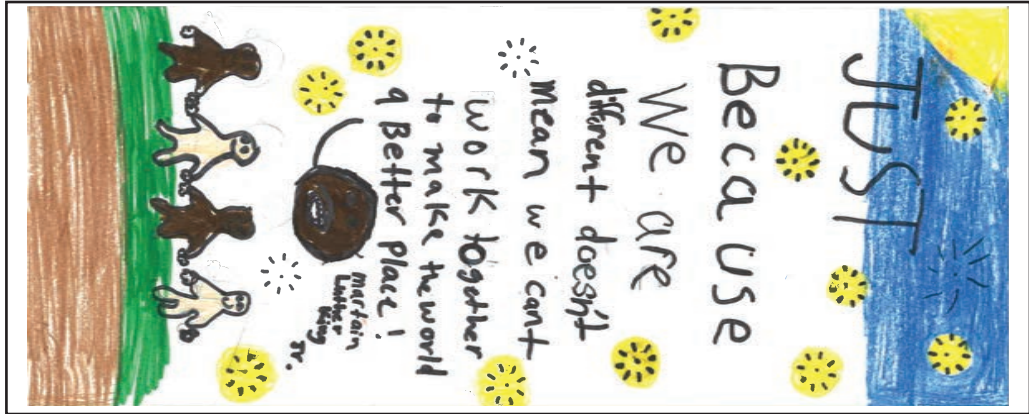 JUST
Because
We are
different doesn't
mean we can't
work together
to make the world
a Better place!
Martain
Luther
King
Jr.